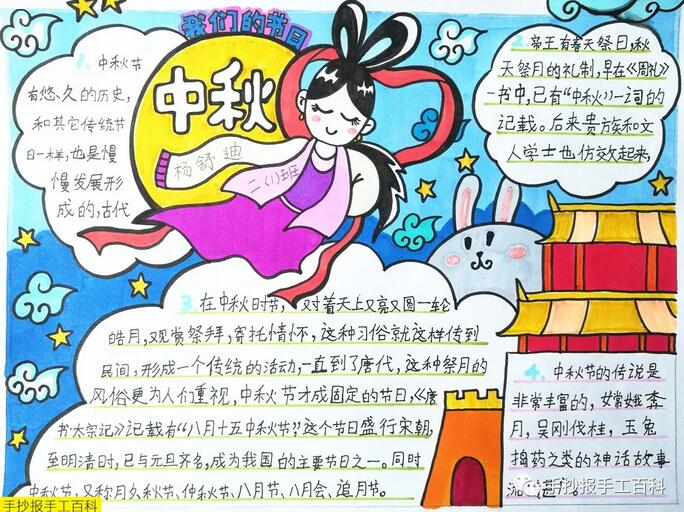 我们的节日
中秋
杨舒迪
二(1)班
1. 中秋节
有悠久的历史,
和其它传统节
日一样,也是慢
慢发展形
成的,古代
2. 帝王有春天祭日,秋
天祭月的礼制,早在《周礼》
一书中,已有“中秋”一词的
记载。后来贵族和文
人学士也仿效起来,
3. 在中秋时节,对着天上又亮又圆一轮
皓月,观赏祭拜,寄托情怀,这种习俗就这样传到
民间,形成一个传统的活动,一直到了唐代,这种祭月的
风俗更为人们重视,中秋节才成固定的节日,《唐
书太宗记》记载有“八月十五中秋节”,这个节日盛行宋朝,
至明清时,已与元旦齐名,成为我国的主要节日之一。同时
中秋节,又称月夕,秋节、仲秋节、八月节、八月会、追月节。
4. 中秋节的传说是
非常丰富的,嫦娥奔
月,吴刚伐桂,玉兔
捣药之类的神话故事
流
手抄报手工百科
手抄报手工百科